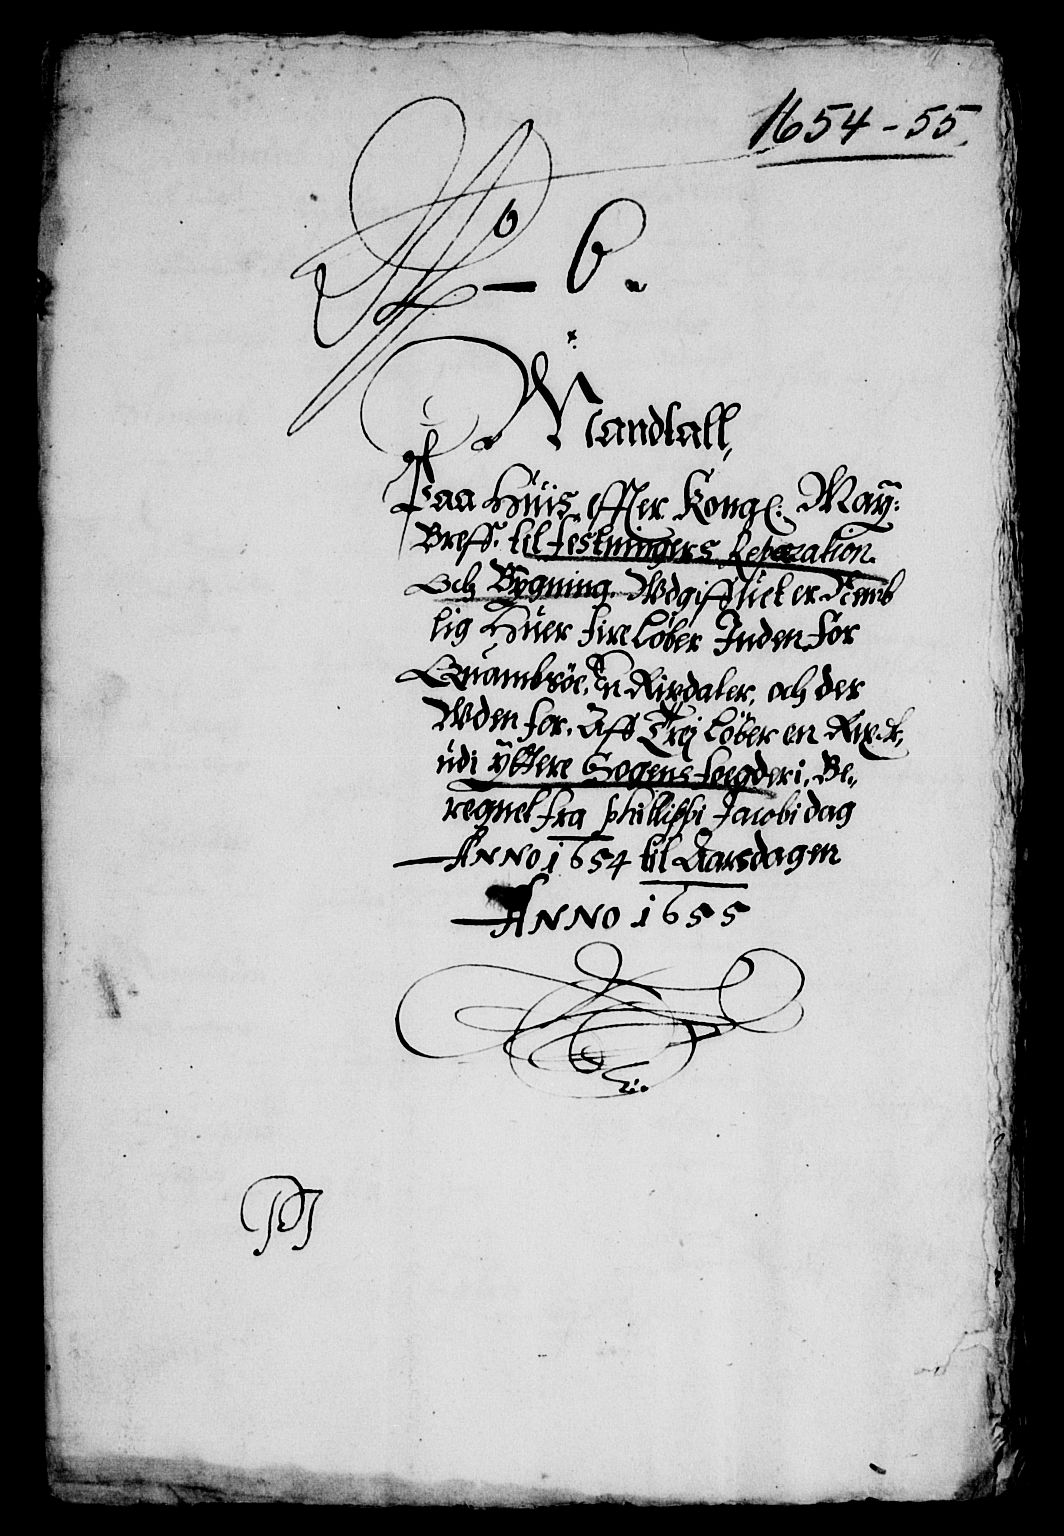 1654-55.
No - 6.
Mandtall,
Paa Huis effter Kongl: May:
Breff. til festningers Reparation.
Och Bÿgning. Wdgifft
lig Huer fire løber Inden for
Quambsøe, En Rixdaler, och der
Wden for. Aff Trej løber en Rix.dr,
udi ÿttere Sogens foegderi, Be,,
regnet fra Phillippi Jacobi dag
Anno 1654 til Aarsdagen
Anno 1655